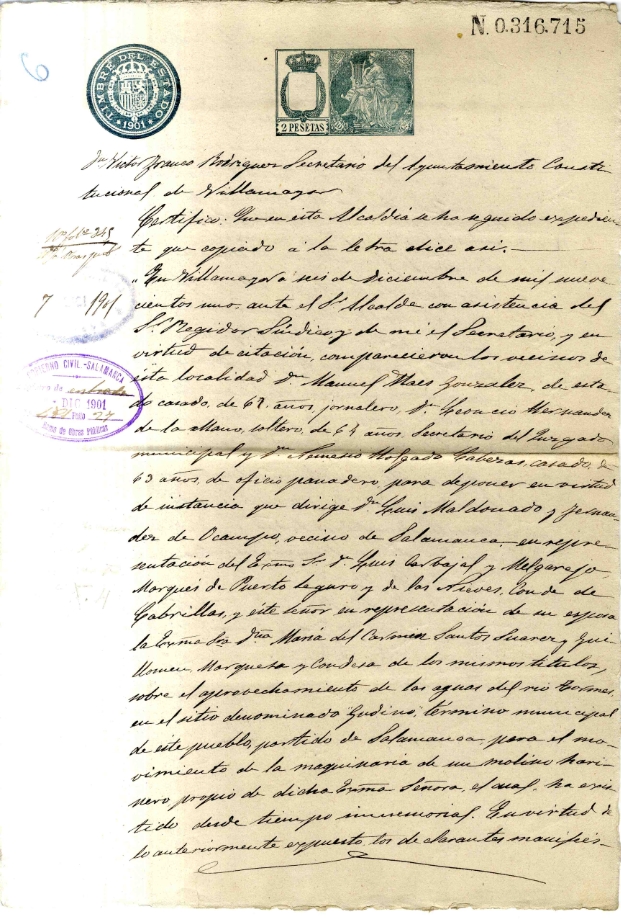 N. 0.316.715
6
TIMBRE DEL ESTADO
1901
2 PESETAS
Dn Victor Franco Rodriguez Secretario del Ayuntamiento Consti-
tucional de Villamayor
Certifico: Que en esta Alcaldía se ha seguido expedien-
te que copiado á la letra dice asi.—
"En Villamayor á seis de Diciembre de mil nueve-
cientos uno, ante el Sr. Alcalde con asistencia del
Sr. Regidor Síndico y de mi el Secretario, y en
virtud de citación, comparecieron los vecinos de
esta localidad Dn. Manuel González, de esta-
do casado, de 62 años, jornalero, Dn. Leoncio Hernandez
de la Mano, soltero, de 64 años, Secretario del Juzgado
municipal y Dn. Nemesio Holgado Cabezas, casado, de
63 años, de oficio panadero, para deponer en virtud
de instancia que dirige Dn. Luis Maldonado y Fernan-
dez de Ocampo, vecino de Salamanca, en repre-
sentación del Exmo Sr. D. Luis Carvajal y Melgarejo,
Marqués de Puerto Seguro y de las Nieves, Conde de
Cabrillas, y este señor en representación de su esposa
la Exma Sra Dña María del Carmen Santos Suarez y Gui-
llamas, Marquesa y Condesa de los mismos titulos,
sobre el aprovechamiento de las aguas del rio Tormes,
en el sitio denominado Gudino, término municipal
de este pueblo, partido de Salamanca, para el mo-
vimiento de la maquinaria de un molino hari-
nero propio de dicha Exma Señora, el cual ha exis-
tido desde tiempo inmemorial. En virtud de
lo anteriormente expuesto, los declarantes manifies-
7 191
GOBIERNO CIVIL-SALAMANCA
entrada
DIC 1901
Folio 27
de Obras Públicas